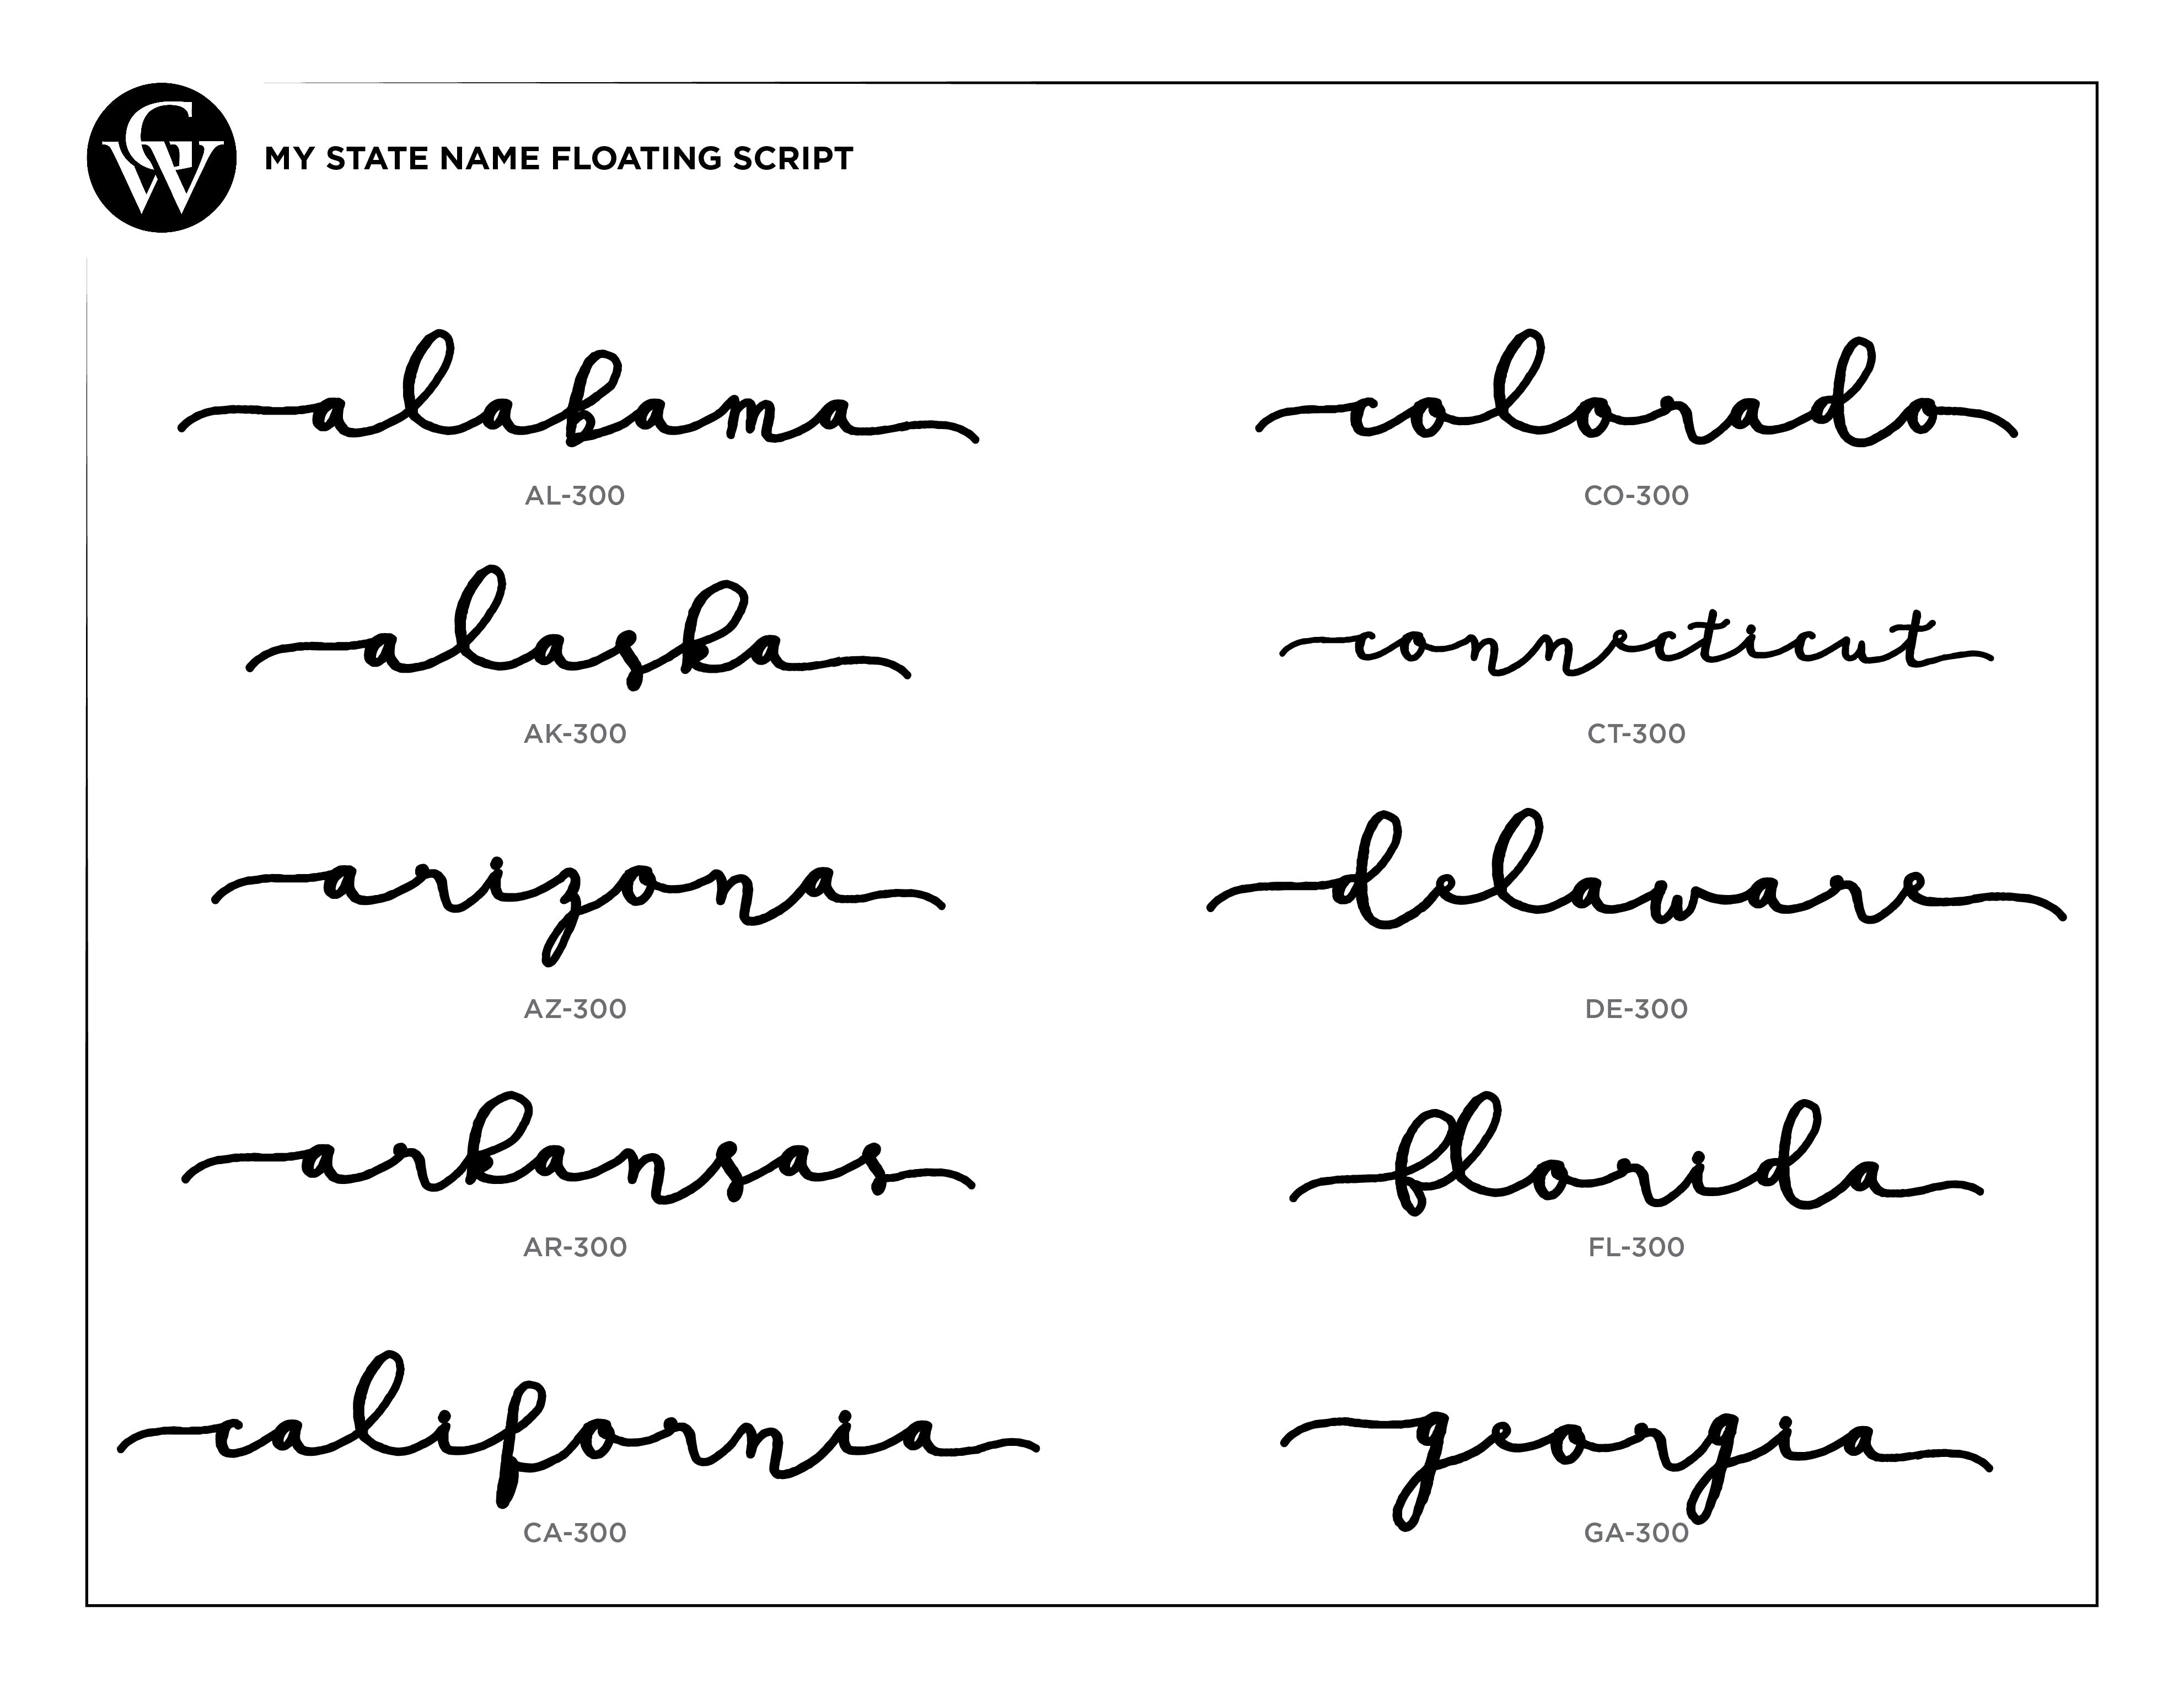 GW
MY STATE NAME FLOATING SCRIPT
alabama
AL-300
alaska
AK-300
arizona
AZ-300
arkansas
AR-300
california
CA-300
colorado
CO-300
connecticut
CT-300
delaware
DE-300
florida
FL-300
georgia
GA-300